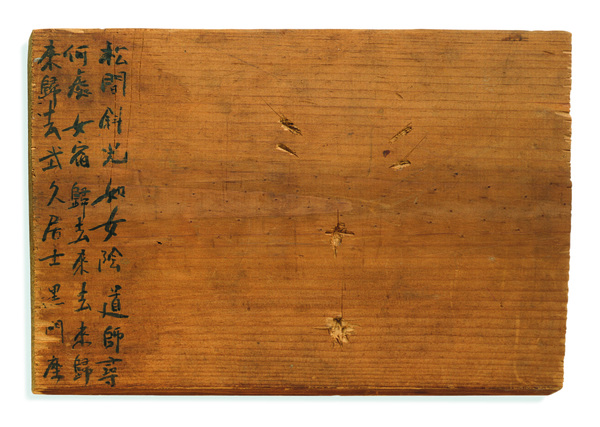 松間斜光如女陰道師尋
何處女宿歸去来去来歸
来歸去武久居士黒門